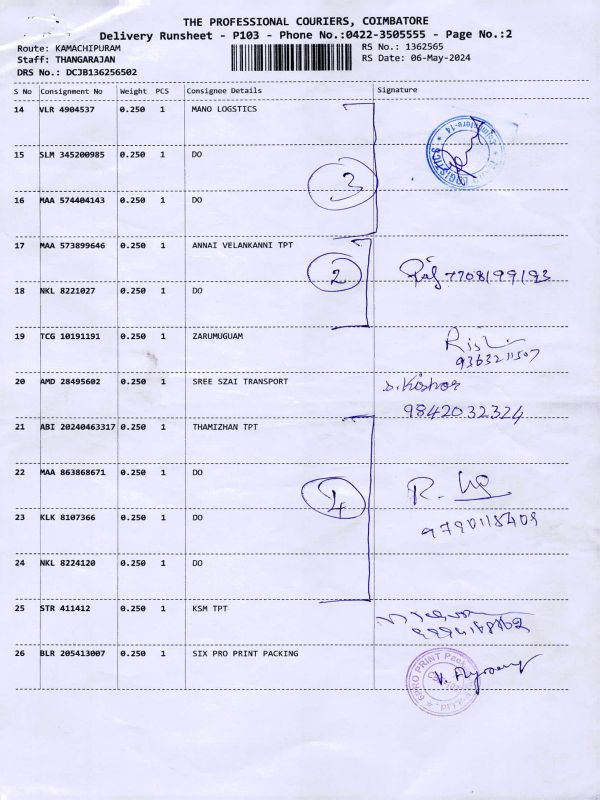 THE PROFESSIONAL COURIERS, COIMBATORE
Delivery Runsheet - P103 - Phone No.:0422-3505555 - Page No.:2
Route: KAMACHIPURAM RS No.: 1362565
Staff: THANGARAJAN RS Date: 06-May-2024
DRS No.: DCJB136256502
S No Consignment No Weight PCS Consignee Details Signature
14 VLR 4904537 0.250 1 MANO LOGSTICS
15 SLM 345200985 0.250 1 DO
3
16 MAA 574404143 0.250 1 DO
17 MAA 573899646 0.250 1 ANNAI VELANKANNI TPT
2 7708199193
18 NKL 8221027 0.250 1 DO
19 TCG 10191191 0.250 1 ZARUMUGUAM
9363211507
20 AMD 28495602 0.250 1 SREE SZAI TRANSPORT S. Kishor
9842032324
21 ABI 20240463317 0.250 1 THAMIZHAN TPT
22 MAA 863868671 0.250 1 DO
4 R.
23 KLK 8107366 0.250 1 DO 9790118409
24 NKL 8224120 0.250 1 DO
25 STR 411412 0.250 1 KSM TPT
26 BLR 205413007 0.250 1 SIX PRO PRINT PACKING
6PRO PRINT